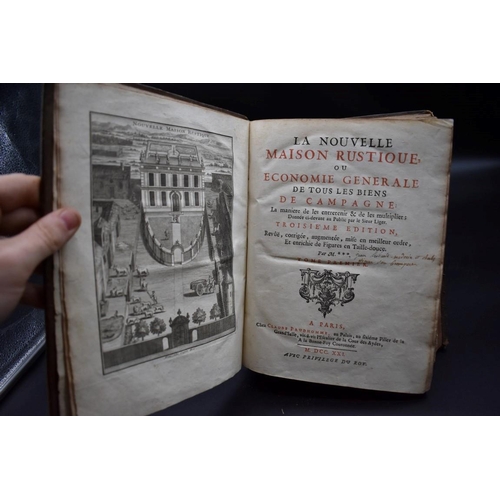 NOUVELLE MAISON RUSTIQUE
LA NOUVELLE
MAISON RUSTIQUE,
OU
ECONOMIE GENERALE
DE TOUS LES BIENS
DE CAMPAGNE:
La maniere de les entretenir & de les multiplier:
Donnée ci-devant au Public par le Sieur Liger.
TROISIEME EDITION,
Revûë, corrigée, augmentée, mise en meilleur ordre,
Et enrichie de Figures en Taille-douce.
Par M. ***
TOME PREMIER.
A PARIS,
Chez CLAUDE PRUDHOMME, au Palais, au sixième Pilier de la
Grand'Salle, vis-à-vis l'Escalier de la Cour des Aydes,
A la Bonne-Foy Couronnée.
M. DCC. XXI.
AVEC PRIVILEGE DU ROY.